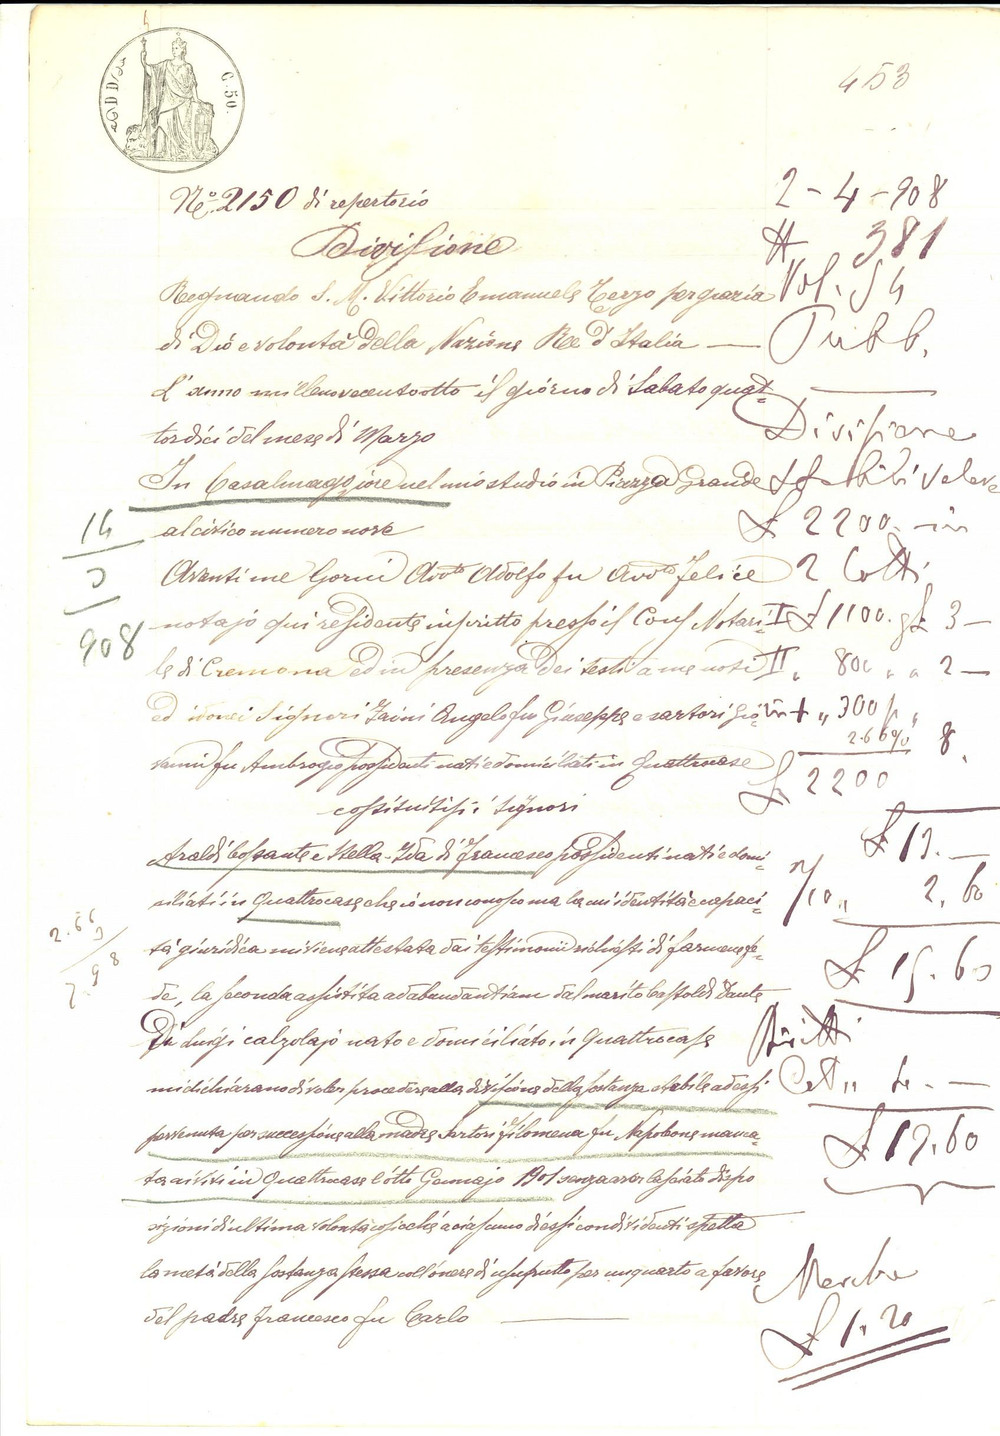 453
C. 50.
N.º 2150 di repertorio
Divisione
Regnando S. M. Vittorio Emanuele Terzo per grazia
di Dio e volontà della Nazione Re d'Italia —
L'anno millenovecentootto il giorno di Sabato quat=
tordici del mese di Marzo
In Casalmaggiore nel mio studio in Piazza Grande
al civico numero nove
Avanti me Gorni Avvto Adolfo fu Avvto Felice
notajo qui residente inscritto presso il Cons Notari-
le di Cremona ed in presenza dei testi a me noti
ed idonei Signori Zaini Angelo fu Giuseppe e Sartori Gio-
vanni fu Ambrogio possidenti nati e domiciliati in Quattrocase
costituitisi i Signori
Araldi Cossante e Stella-Ida di Francesco possidenti nati e domi-
ciliati in Quattrocase che io non conosco ma la cui identità e capaci-
tà giuridica mi viene attestata dai testimonii richiesti di farmene fe-
de, la seconda assistita ad abundantiam dal marito Castoldi Dante
Di Luigi calzolajo nato e domiciliato in Quattrocase
mi dichiarano di voler procedere alla divisione della sostanza stabile ad essi
pervenuta per successione alla madre Sartori Filomena fu Napoleone manca-
ta ai vivi in Quattrocase l'otto Gennajo 1901 senza aver lasciato dispo
sizioni di ultima volontà cosicchè a ciascuno di essi condividenti spetta
la metà della sostanza stessa coll'onere di usufrutto per un quarto a favore
del padre Francesco fu Carlo —
2 - 4 - 908
# 381
Vol. 54
Pubb.
Divisione
£ 2200. in
2 Lotti
I £ 1100. 3 —
II „ 800 „ „ 2 —
+ „ 300
2.66% 8.
£ 2200
£ 13. —
7/10 „ 2. 60
£ 15. 60
Diritti
Cat „ 4. —
£ 19. 60
Marche
£ 1. 20
14
3
908
2.66
3
7.98